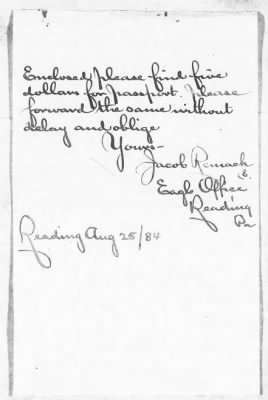 Enclosed please find five
dollars for passport. Please
forward the same without
delay and oblige
Yours-
Jacob
Eagle Office
Reading
Pa
Reading Aug 25/84